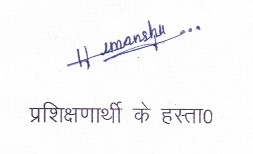 Himanshu...
प्रशिक्षणार्थी के हस्ता0